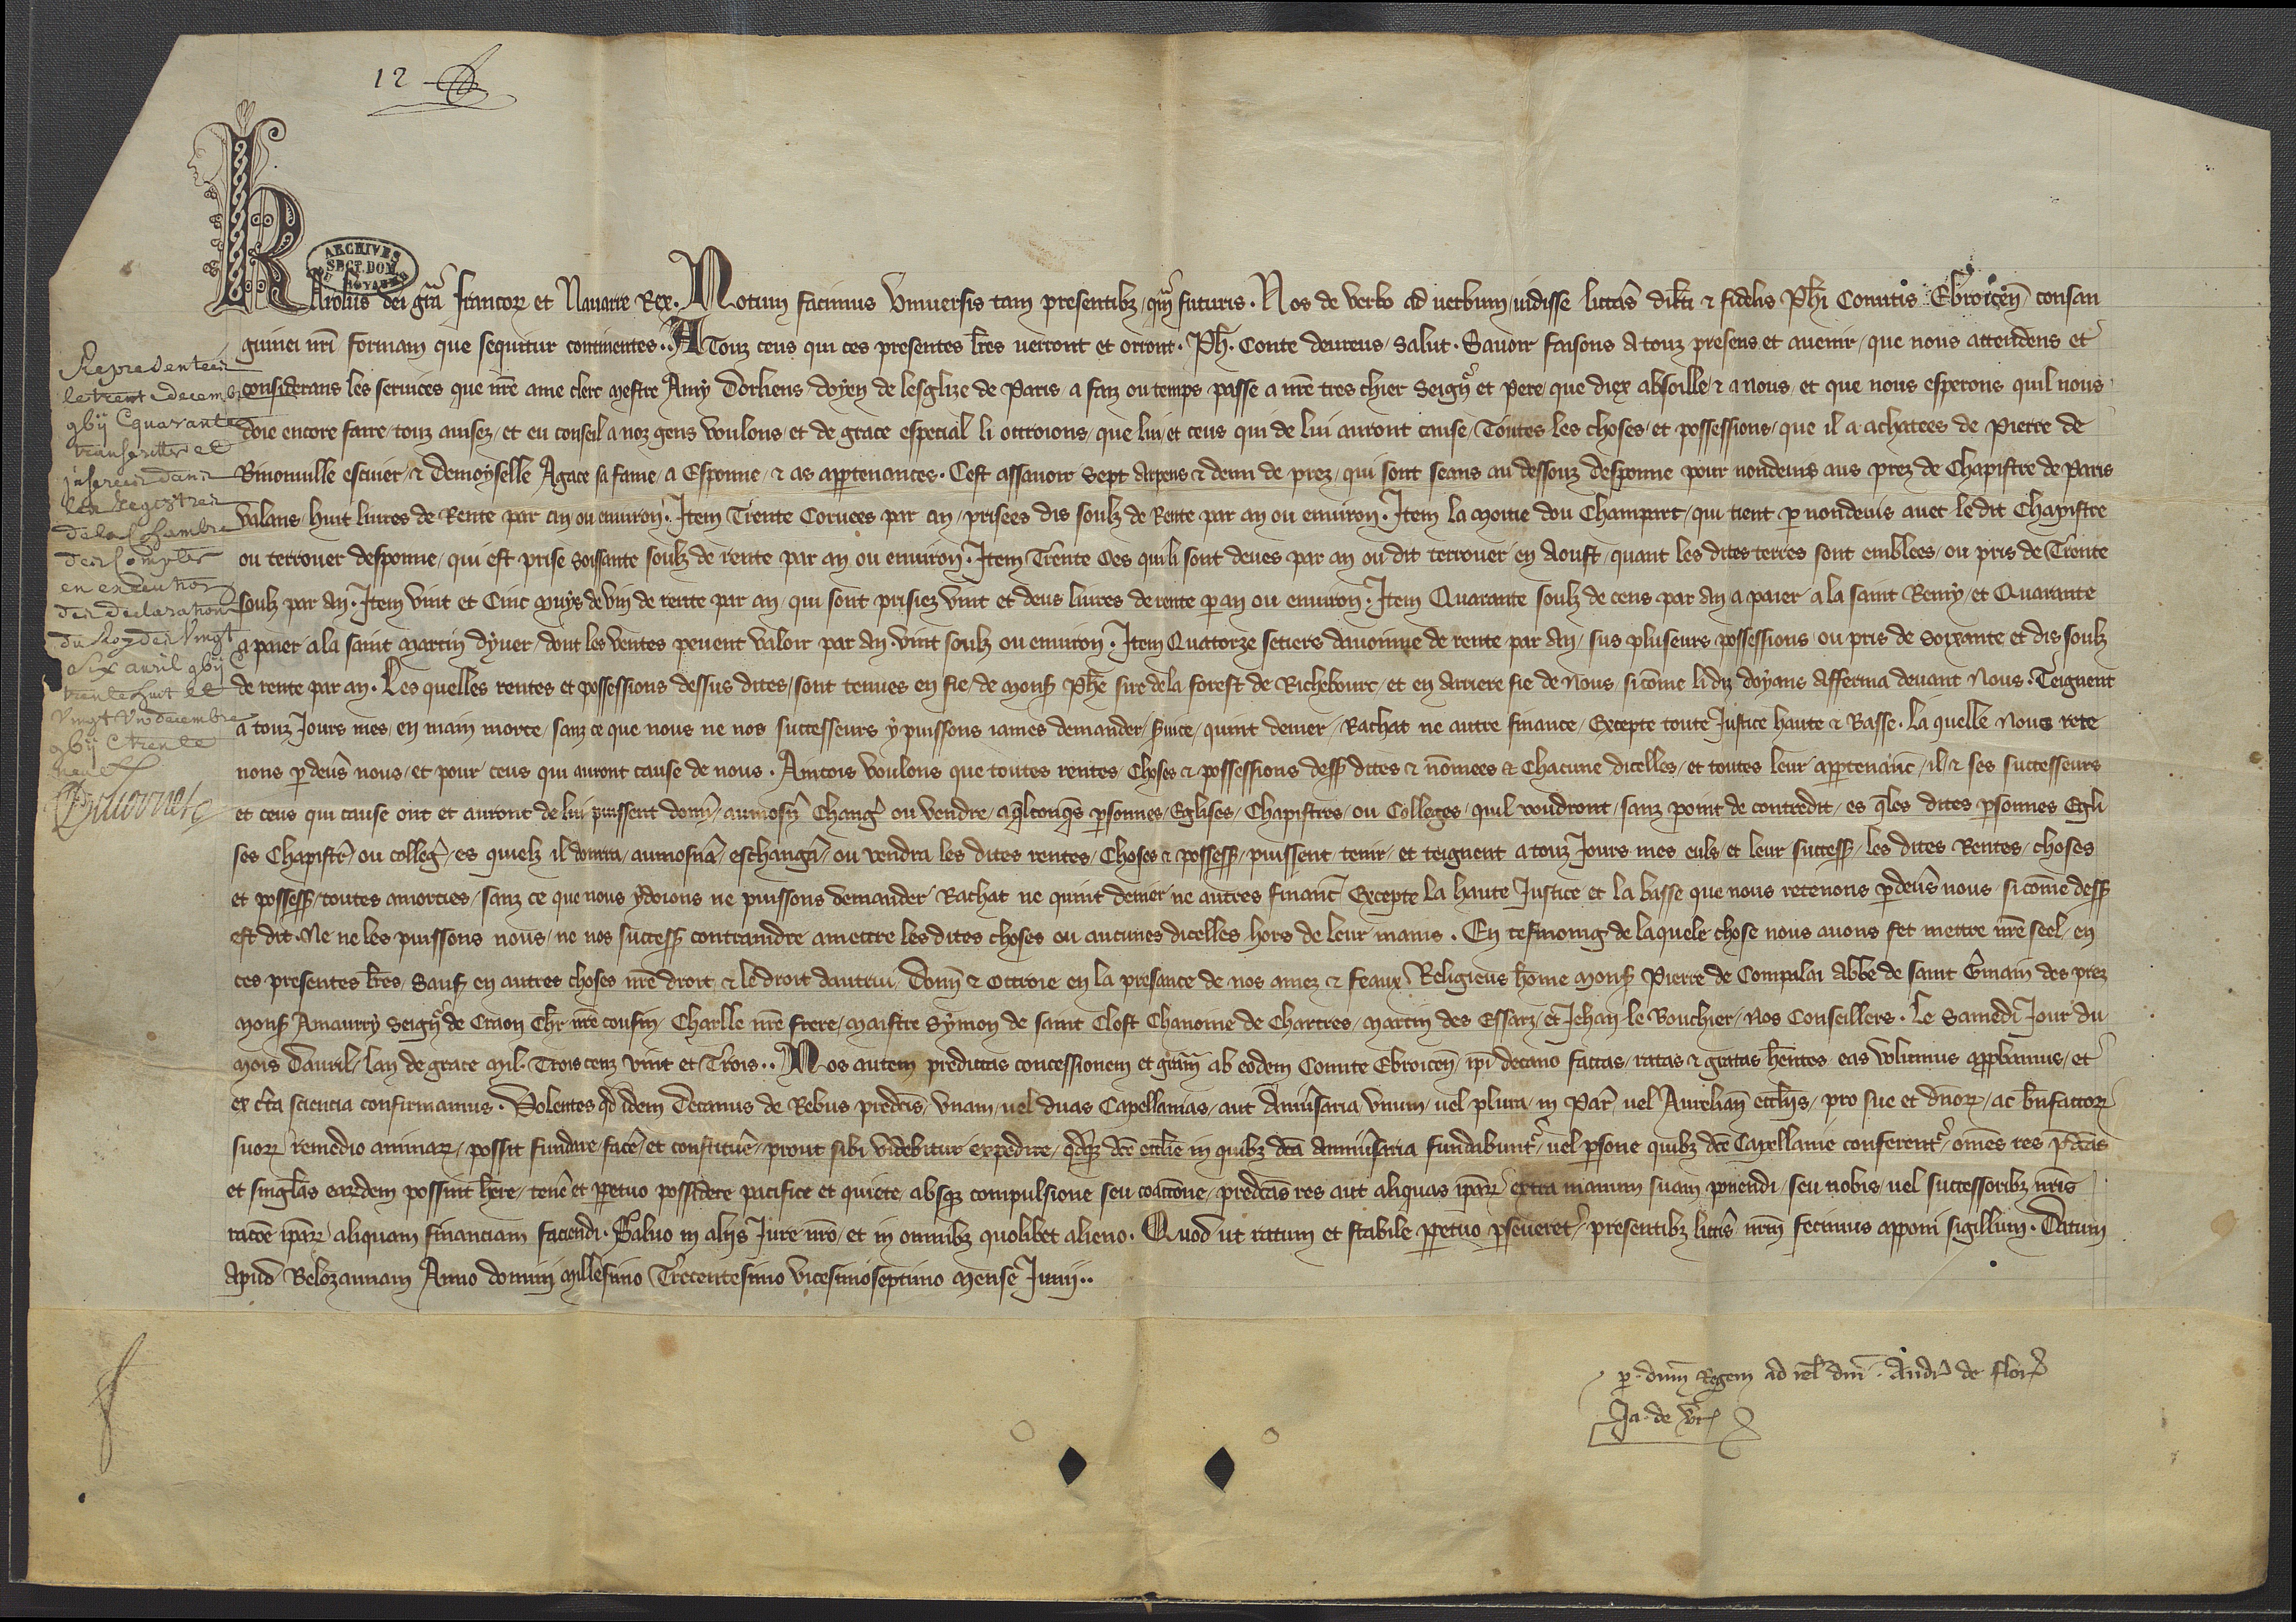 12
ARCHIVES
SECT. DOM.
DU ROYAUME
KArolus dei gr̃a Francoꝝ et Nauarre Rex. Notum facimus Vniuersis tam presentibꝫ, qm̃ futuris. Nos de verbo ad uerbum, uidisse litt̃as dil̃ti ⁊ fidelis Ph̃i Comitis Ebroiceñ consan
guinei nr̃i formam que sequitur continentes.. A Touz ceus qui ces presentes lr̃es uerront et orront. Ph̃. Conte deureus, Salut. Sauoir faisons a touz presens et auenir, que nous attendens et
considerans les seruices que nr̃e ame clerc Mestre Amy Dorliens, doyen de lesglize de Paris, a faiz ou temps passe a nr̃e tres chier Seigñr et Pere, que diex absoille, ⁊ a nous, et que nous esperons quil nous
doie encore faire, touz auisez, et eu conseil a noz gens voulons, et de grace especial li ottroions, que lui, et ceus qui de lui auront cause, Toutes les choses, et possessions, que il a achatees de Pierre de
Binonuille escuier, ⁊ demoyselle Agace sa fame, a Esponne, ⁊ as appertenances. Cest assauoir Sept Arpens ⁊ demi de prez, qui sont seans au dessouz desponne pour nondeuis aus prez de Chapistre de Paris
valans, huit liures de Rente par an ou enuiron. Item Trente Coruees par an, prisees dis soulz de Rente par an ou enuiron. Item la moitie dou Champart, qui tient ꝑ nondeuis auec le dit Chapistre
ou terrouer desponne, qui est prise soissante soulz de rente par an ou enuiron. Item Trente Oes quili sont deues par an ou dit terrouer en Aoust, quant les dites terres sont emblees, ou pris de Trente
soulz par An. Item vint et Cinc Muys de vin de rente par an, qui sont prisiez vint et deus liures de rente ꝑ an ou enuiron. Item Quarante soulz de cens par An a paier a la saint Remy, et Quarante
a paier a la saint Martin dyuer, dont les ventes peuent valoir par An vint soulz ou enuiron. Item Quatorze setiers dauoinne de rente par An, sus pluseurs possessions, ou pris de Soixante et dis soulz
de rente par an. Les quelles rentes et possessions dessus dites, sont tenues en fie, de Mons̃ Ph̃e sire de la forest de Richebourc, et en Arriere fie de Nous, si com̃e li diz doyans Afferma deuant Nous. Teignent
a touz Jours mes, en main morte, sanz ce que nous ne nos successeurs y puissons iames demander, s̃uice, quint denier, Rachat ne autre finance, Excepte toute Justice haute ⁊ Basse, la quelle Nous rete
nons ꝑ deũs nous, et pour ceus qui auront cause de nous. Aincois voulons que toutes rentes, Choses ⁊ possessions dess̃ dites ⁊ nõmees ⁊ Chacune dicelles, et toutes leur appertenanc̃, il, ⁊ ses successeurs
et ceus qui cause ont et auront de lui puissent doñr, aumosñr Chang̃r ou vendre, a q̃lconq̃s ꝑsonnes, Eglises, Chapistres, ou Colleges, quil voudront, sanz point de contredit, es q̃les dites ꝑsonnes Egli
ses Chapistr̃ ou colleg̃, es quielz il donrra, aumosñra, eschang̃a, ou vendra les dites rentes, Choses ⁊ possess̃, puissent tenir, et teignent a touz Jours mes euls, et leur success̃, les dites Rentes, choses
et possess̃, toutes amorties, sanz ce que nous y doions ne puissons demander Rachat ne quint denier ne autres financ̃ Excepte la haute Justice et la basse que nous retenons ꝑ deũs nous, si com̃e dess̃
est dit. Ne ne les puissons nous, ne nos success̃ contraindre a mettre les dites choses ou aucunes dicelles, hors de leur mains. En tesmoing de laquele chose nous auons fet mettre nr̃e seel, en
ces presentes lr̃es, Sauf en autres choses nr̃e droit, ⁊ le droit dautrui, Doñ ⁊ Ottroie en la presance de nos amez ⁊ feaux, Religieus hõme Mons̃ Pierre de Compalai Abbe de saint G̃main des prez
Mons̃ Amaurry Seigñr de Craon Chr̃ nr̃e cousin, Charlle nr̃e frere, Maistre Symon de saint Clost Chanoine de Chartres, Martin des Essarz, et Jehan le Bouchier, Nos Conseillers. Le Samedi Jour du
Mois Dauril, lan de grace Mil. Trois cenz vint et Trois.. Nos autem predictas concessionem et grãm ab eodem Comite Ebroiceñ, ip̃i decano factas, ratas ⁊ gratas hñtes eas volumus app̃bamus, et
ex c̃ta sciencia confirmamus. Volentes qd̃ idem Decanus de Rebus predc̃is, vnam, uel duas Capellanias, aut Anniũsaria vnum, uel plura, in Par̃, uel Aureliañ eccl̃iis, pro sue et dñoꝝ, ac bñfactoꝝ
suoꝝ remedio animaꝝ, possit fundare, fac̃e, et constitũe, prout sibi videbitur expedire, qd̃qꝫ dc̃e eccl̃ie in quibꝫ dc̃a Anniũsaria fundabunt̃, uel ꝑsone quibꝫ dc̃e Capellanie conferent̃, om̃es res p̃dc̃as
et singl̃as eaꝝdem possint hr̃e, teñe et ꝑpetuo possidere pacifice et quiete, absqꝫ compulsione seu coac̃cone, predc̃as res aut aliquas ip̃aꝝ extra manum suam ponendi, seu nobis, uel successoribꝫ nr̃is
rac̃oe ip̃aꝝ aliquam financiam faciendi. Saluo in aliis Jure nr̃o, et in omnibꝫ quolibet alieno. Quod ut ratum et stabile ꝑpetuo ꝑseueret, presentibꝫ litt̃is nr̃m fecimus apponi sigillum. Datum
Apud Belozannam Anno domini Millesimo Trecentesimo vicesimoseptimo Mense Junij..
Representees
le trente decembre
xvij C quarante
transcrittes et
inserees dans
les Registres
de la Chambre
des Comptes
en execution
des declarations
du Roy des vingt
six avril xvij C
trente huit et
vingt un decembre
xvij C trente
neuf
ꝑ. dñm Regem ad rel̃ dñi. Andr̃ de flor̃
Ja. de Vr̃